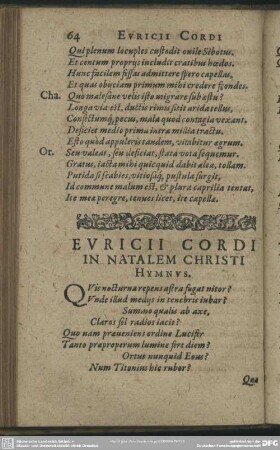 64 EVRICII CORDI
Qui plenum locuples custodit ouile Sibotus,
Et centum proprijs includit cratibus hœdos.
Hunc facilem fessas admittere spero capellas,
Et quas obuiam primum mihi credere
Cha. Quo malesane velis isto migrare sub æstu?
Longa via est, ductis rimis sitit arida tellus,
pecus, mala quod contagia vexant.
Deficiet medio prima intra milia tractu.
Esto quòd appuleris tandem, vitabitur ægrum.
Ot. Seu valeat, seu deficiat, stata vota sequemur.
Gratus, tacta mihi quicquid dabit alea, tollam.
Putida si scabies, pustula surgit,
Id commune malum est, & plura caprilia tentat,
Ite meæ peregre, tenues licet, ite capellæ.
EVRICII CORDI
IN NATALEM CHRISTI
HYMNVS.
QVis nocturna repens astra fugat nitor?
Vnde illud medijs in tenebris iubar?
Summo qualis ab axe,
Claros sol radios iacit?
Quo nam præueniens ordine Lucifer
Tanto præproperum lumine fert diem?
Ortus nunquid Eous?
Num Titonius hic rubor?
Qua